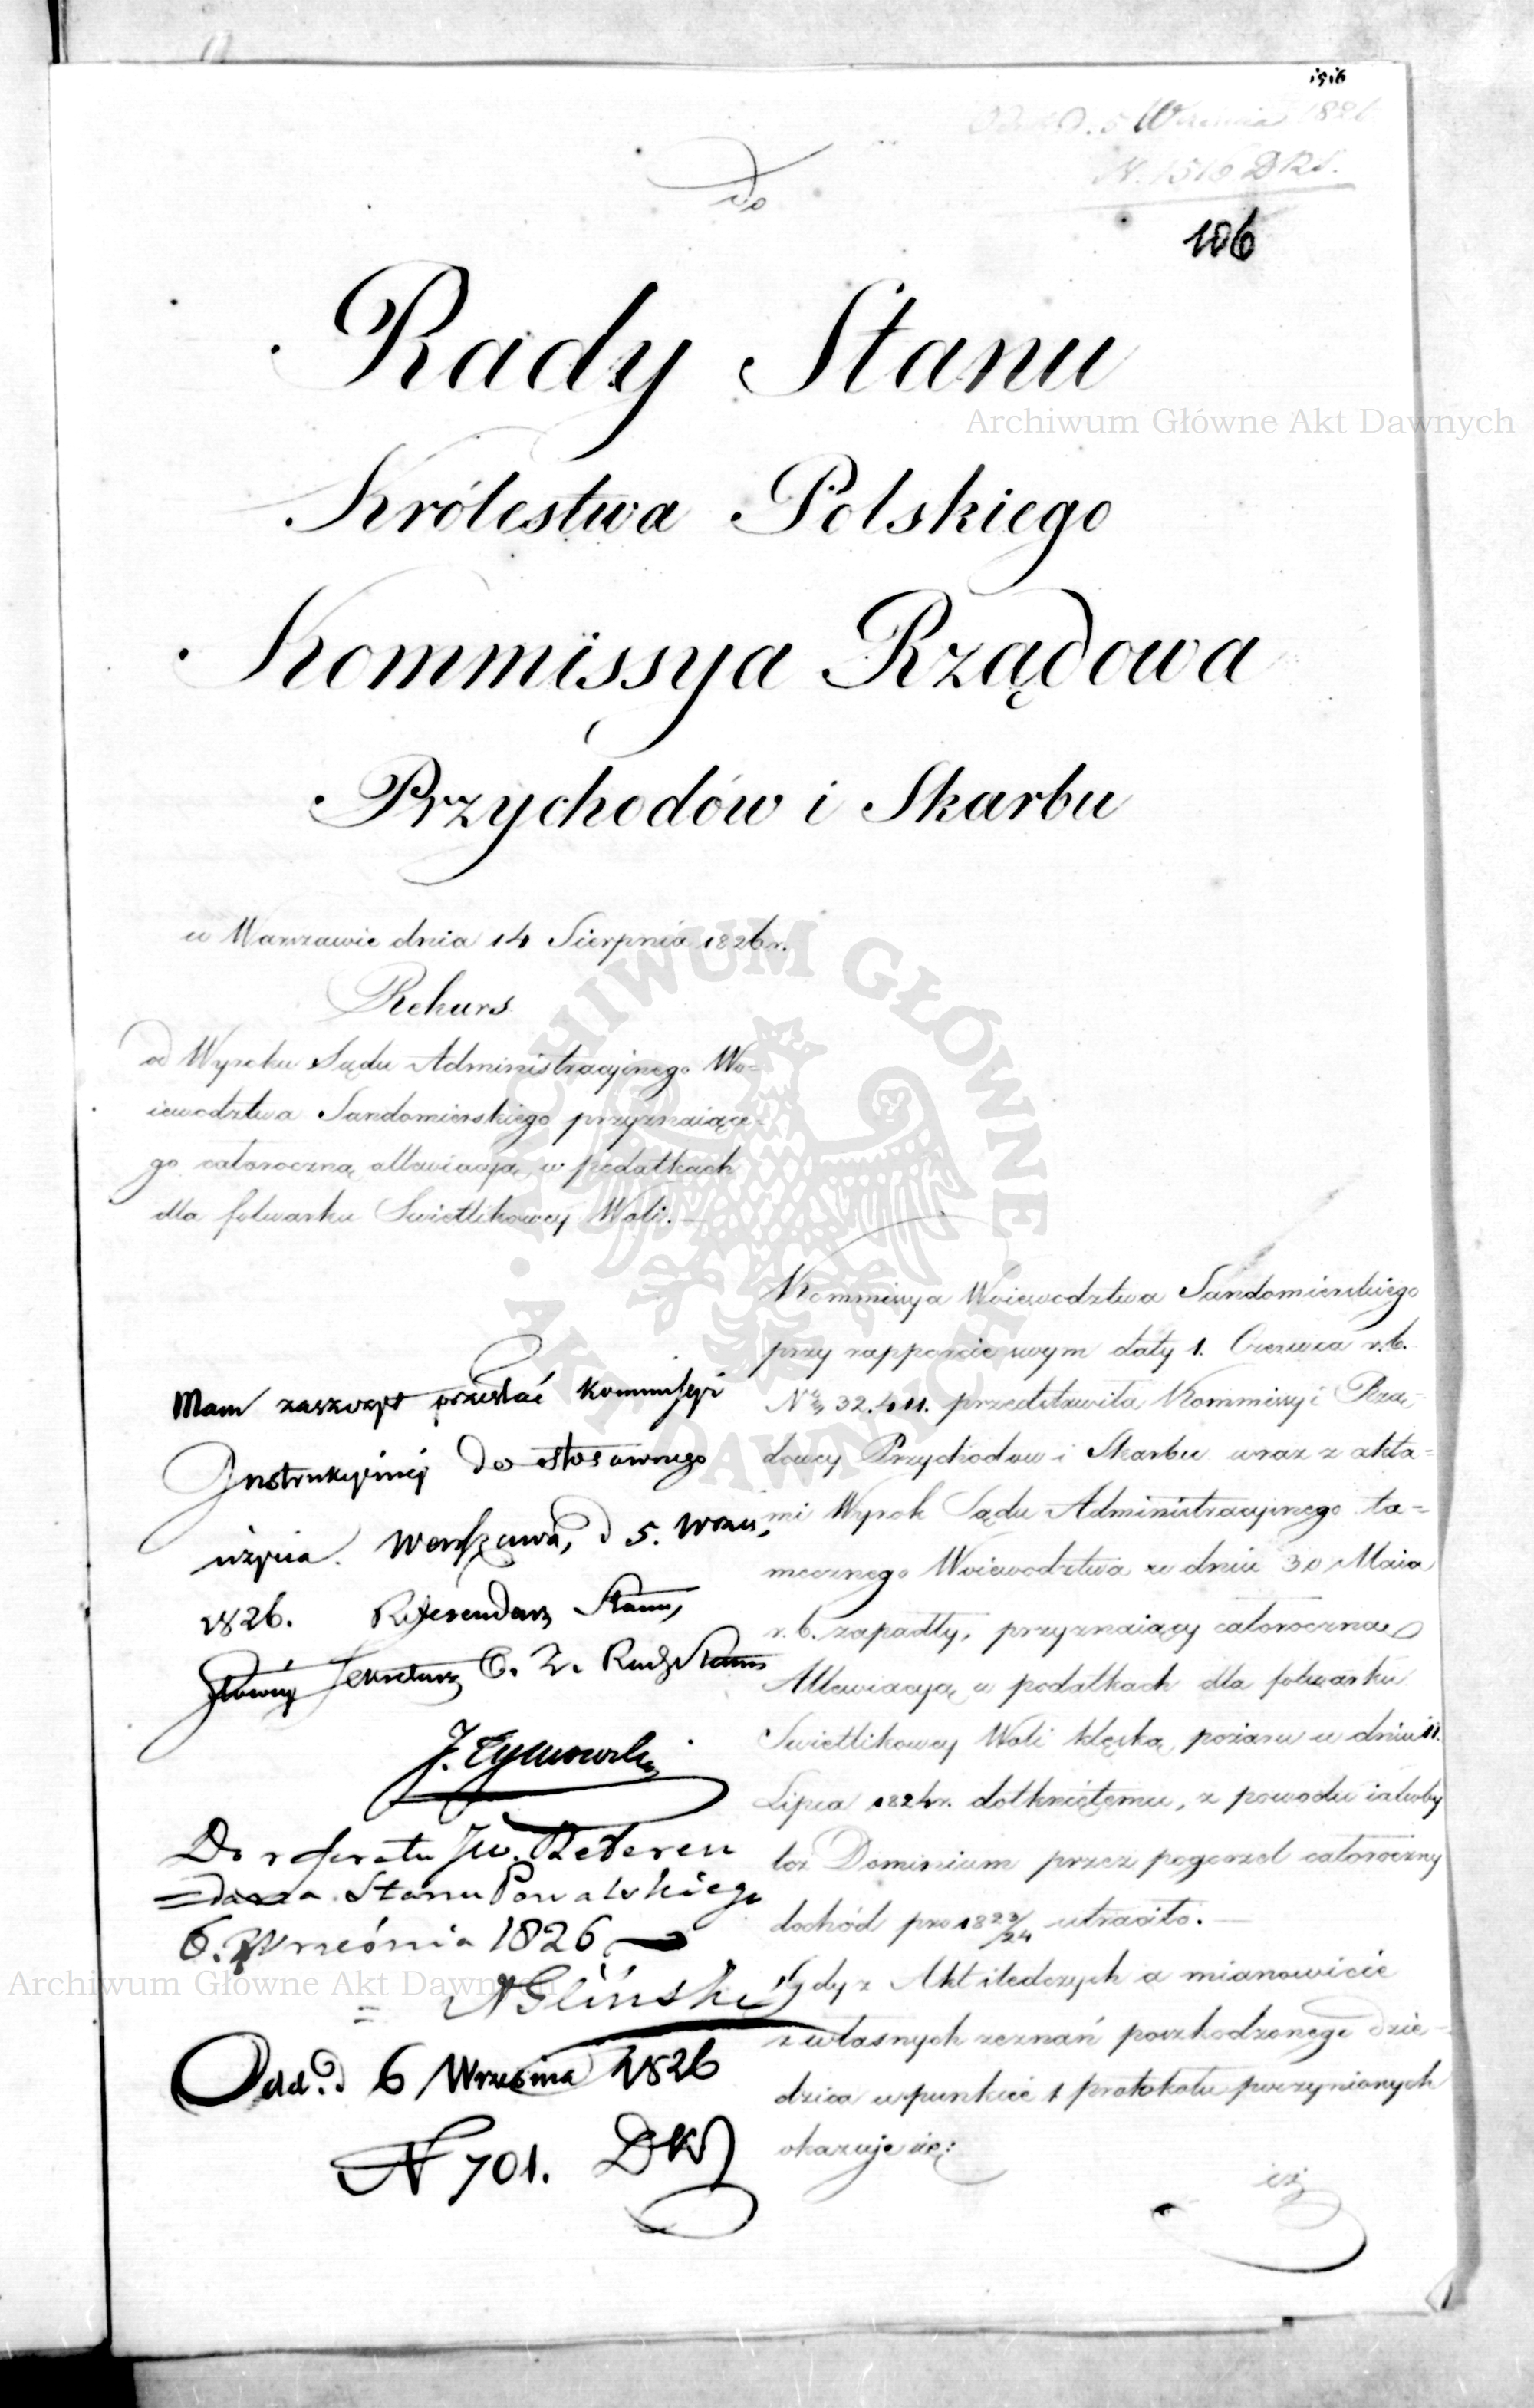 1516
Odd. d. 5 Września 1826
N. 1516 DRS.
106
Do
Rady Stanu
Królestwa Polskiego
Kommissya Rządowa
Przychodów i Skarbu
w Warszawie dnia 14 Sierpnia 1826 r.
Rekurs
od Wyroku Sądu Administracyinego Wo=
iewodztwa Sandomierskiego przyznaiące-
go całoroczną allewiacyą w podatkach
dla folwarku Swietlikowey Woli. —
Mam zaszczyt przesłać Kommissyi
Instrukcyiney do stosownego
użycia. Warszawa, d 5. Wrześ,
1826. Referendarz Stanu,
Główny Sekretarz C. Z. Rady Stanu
J. Tymowski
Do referatu JW. Referen
=darza Stanu Powalskiego
6. Września 1826
= Gliński
Odd. d 6 Września 1826
N 701. DKJ
Kommissya Woiewodztwa Sandomierskiego
przy rapporcie swym daty 1. Czerwca r. b.
Nro 32.411. przedstawiła Kommissyi Rzą-
dowey Przychodow i Skarbu wraz z akta=
mi Wyrok Sądu Administracyinego ta=
mecznego Woiewodztwa w dniu 30 Maia
r. b. zapadły, przyznaiący całoroczną
Allewiacyą w podatkach dla folwarku
Swietlikowey Woli klęską pożaru w dniu 11.
Lipca 1824 r. dotkniętemu, z powodu iakoby
toż Dominium przez pogorzel całoroczny
dochód pro 1823/24 utraciło. —
Gdy z Akt śledczych a mianowicie
z własnych zeznań poszkodzonego dzie-
dzica w punkcie 1 protokołu poczynionych
okazuje się:
iż
Archiwum Główne Akt Dawnych
Archiwum Główne Akt Dawnych
ARCHIWUM GŁÓWNE · AKT DAWNYCH ·